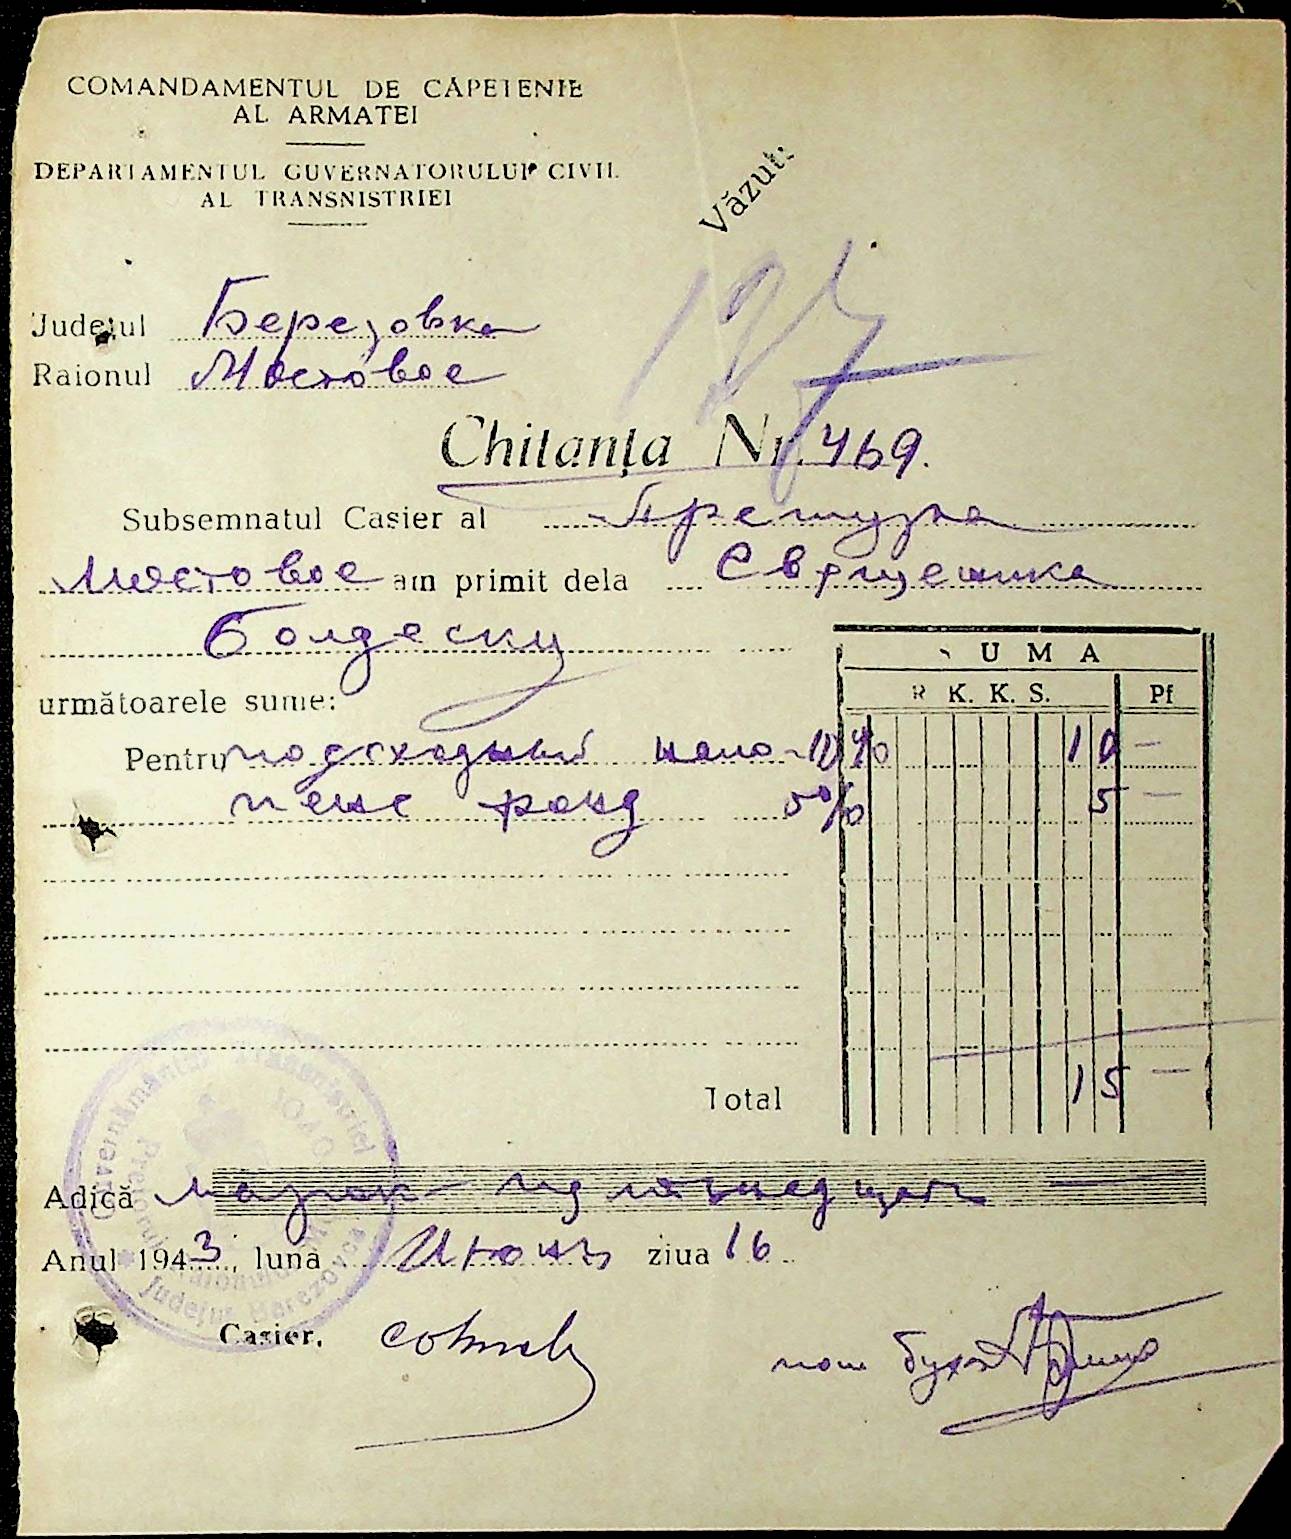 COMANDAMENTUL DE CĂPETENIE
AL ARMATEI
DEPARTAMENTUL GUVERNATORULUI CIVIL
AL TRANSNISTRIEI
Văzut:
197
Județul Березовка
Raionul Мостовое
Chitanța Nr. 469.
Subsemnatul Casier al Претура
Мостовое am primit dela Священика
Болдеску
următoarele sume:
SUMA
R. K. K. S. Pf
Pentru подоходный нало 10% 10 —
пенс фонд 5% 5 —
Total 15 —
Adică марок пятнадцать —
Anul 1943, luna Июнь ziua 16
Casier,
пом бухг
Guvernământul Transnistriei
Județul Berezovca